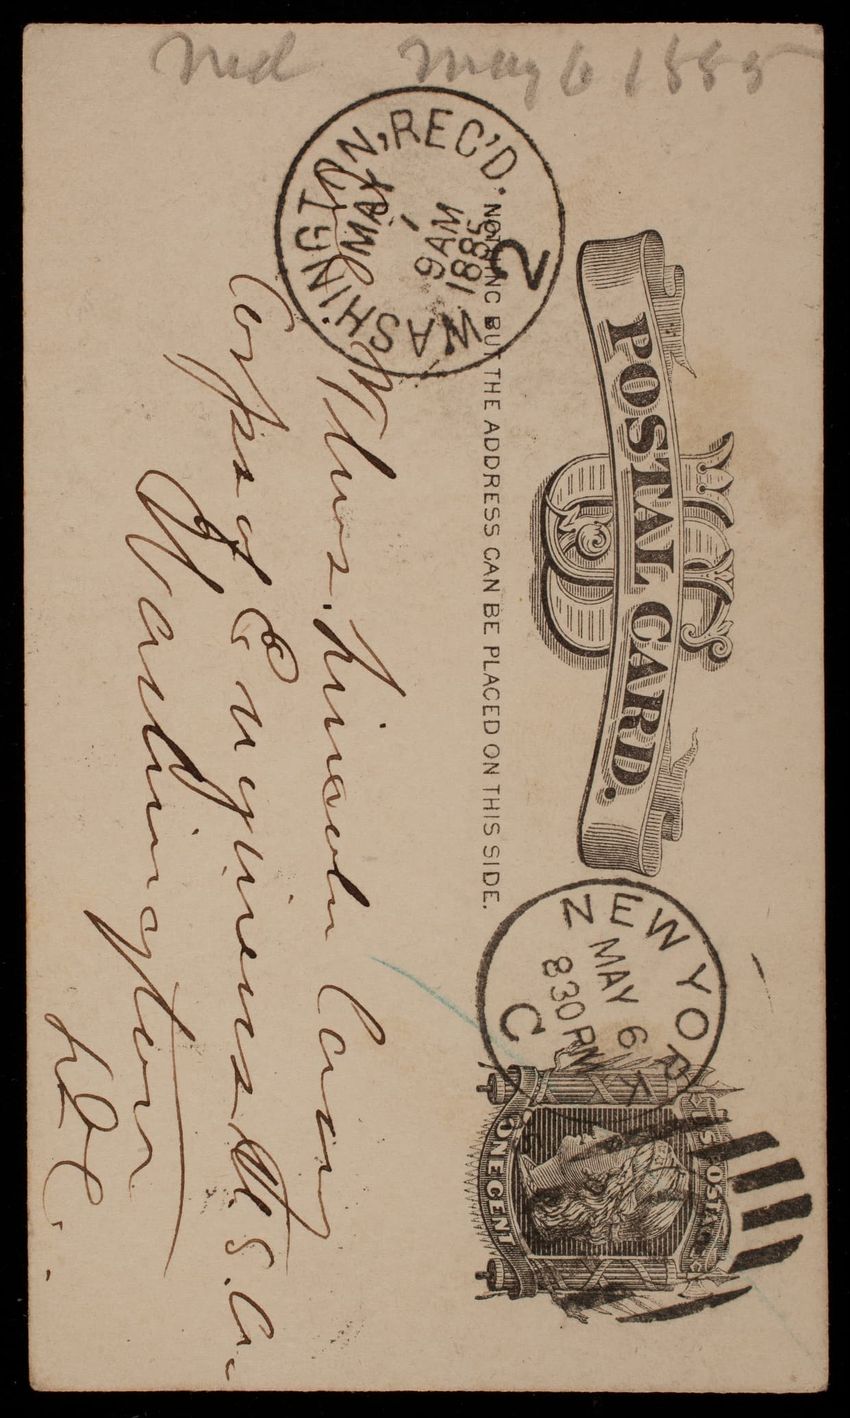 Ned May 6 1885
POSTAL CARD.
US
U.S. POSTAGE
ONE CENT
NEW YORK
MAY 6
830PM
C
NOTHING BUT THE ADDRESS CAN BE PLACED ON THIS SIDE.
WASHINGTON, REC'D.
MAY
7
9AM
1885
2
Col
Thos. Lincoln Casey
Corps of Engineers U.S.A.
Washington
D.C.